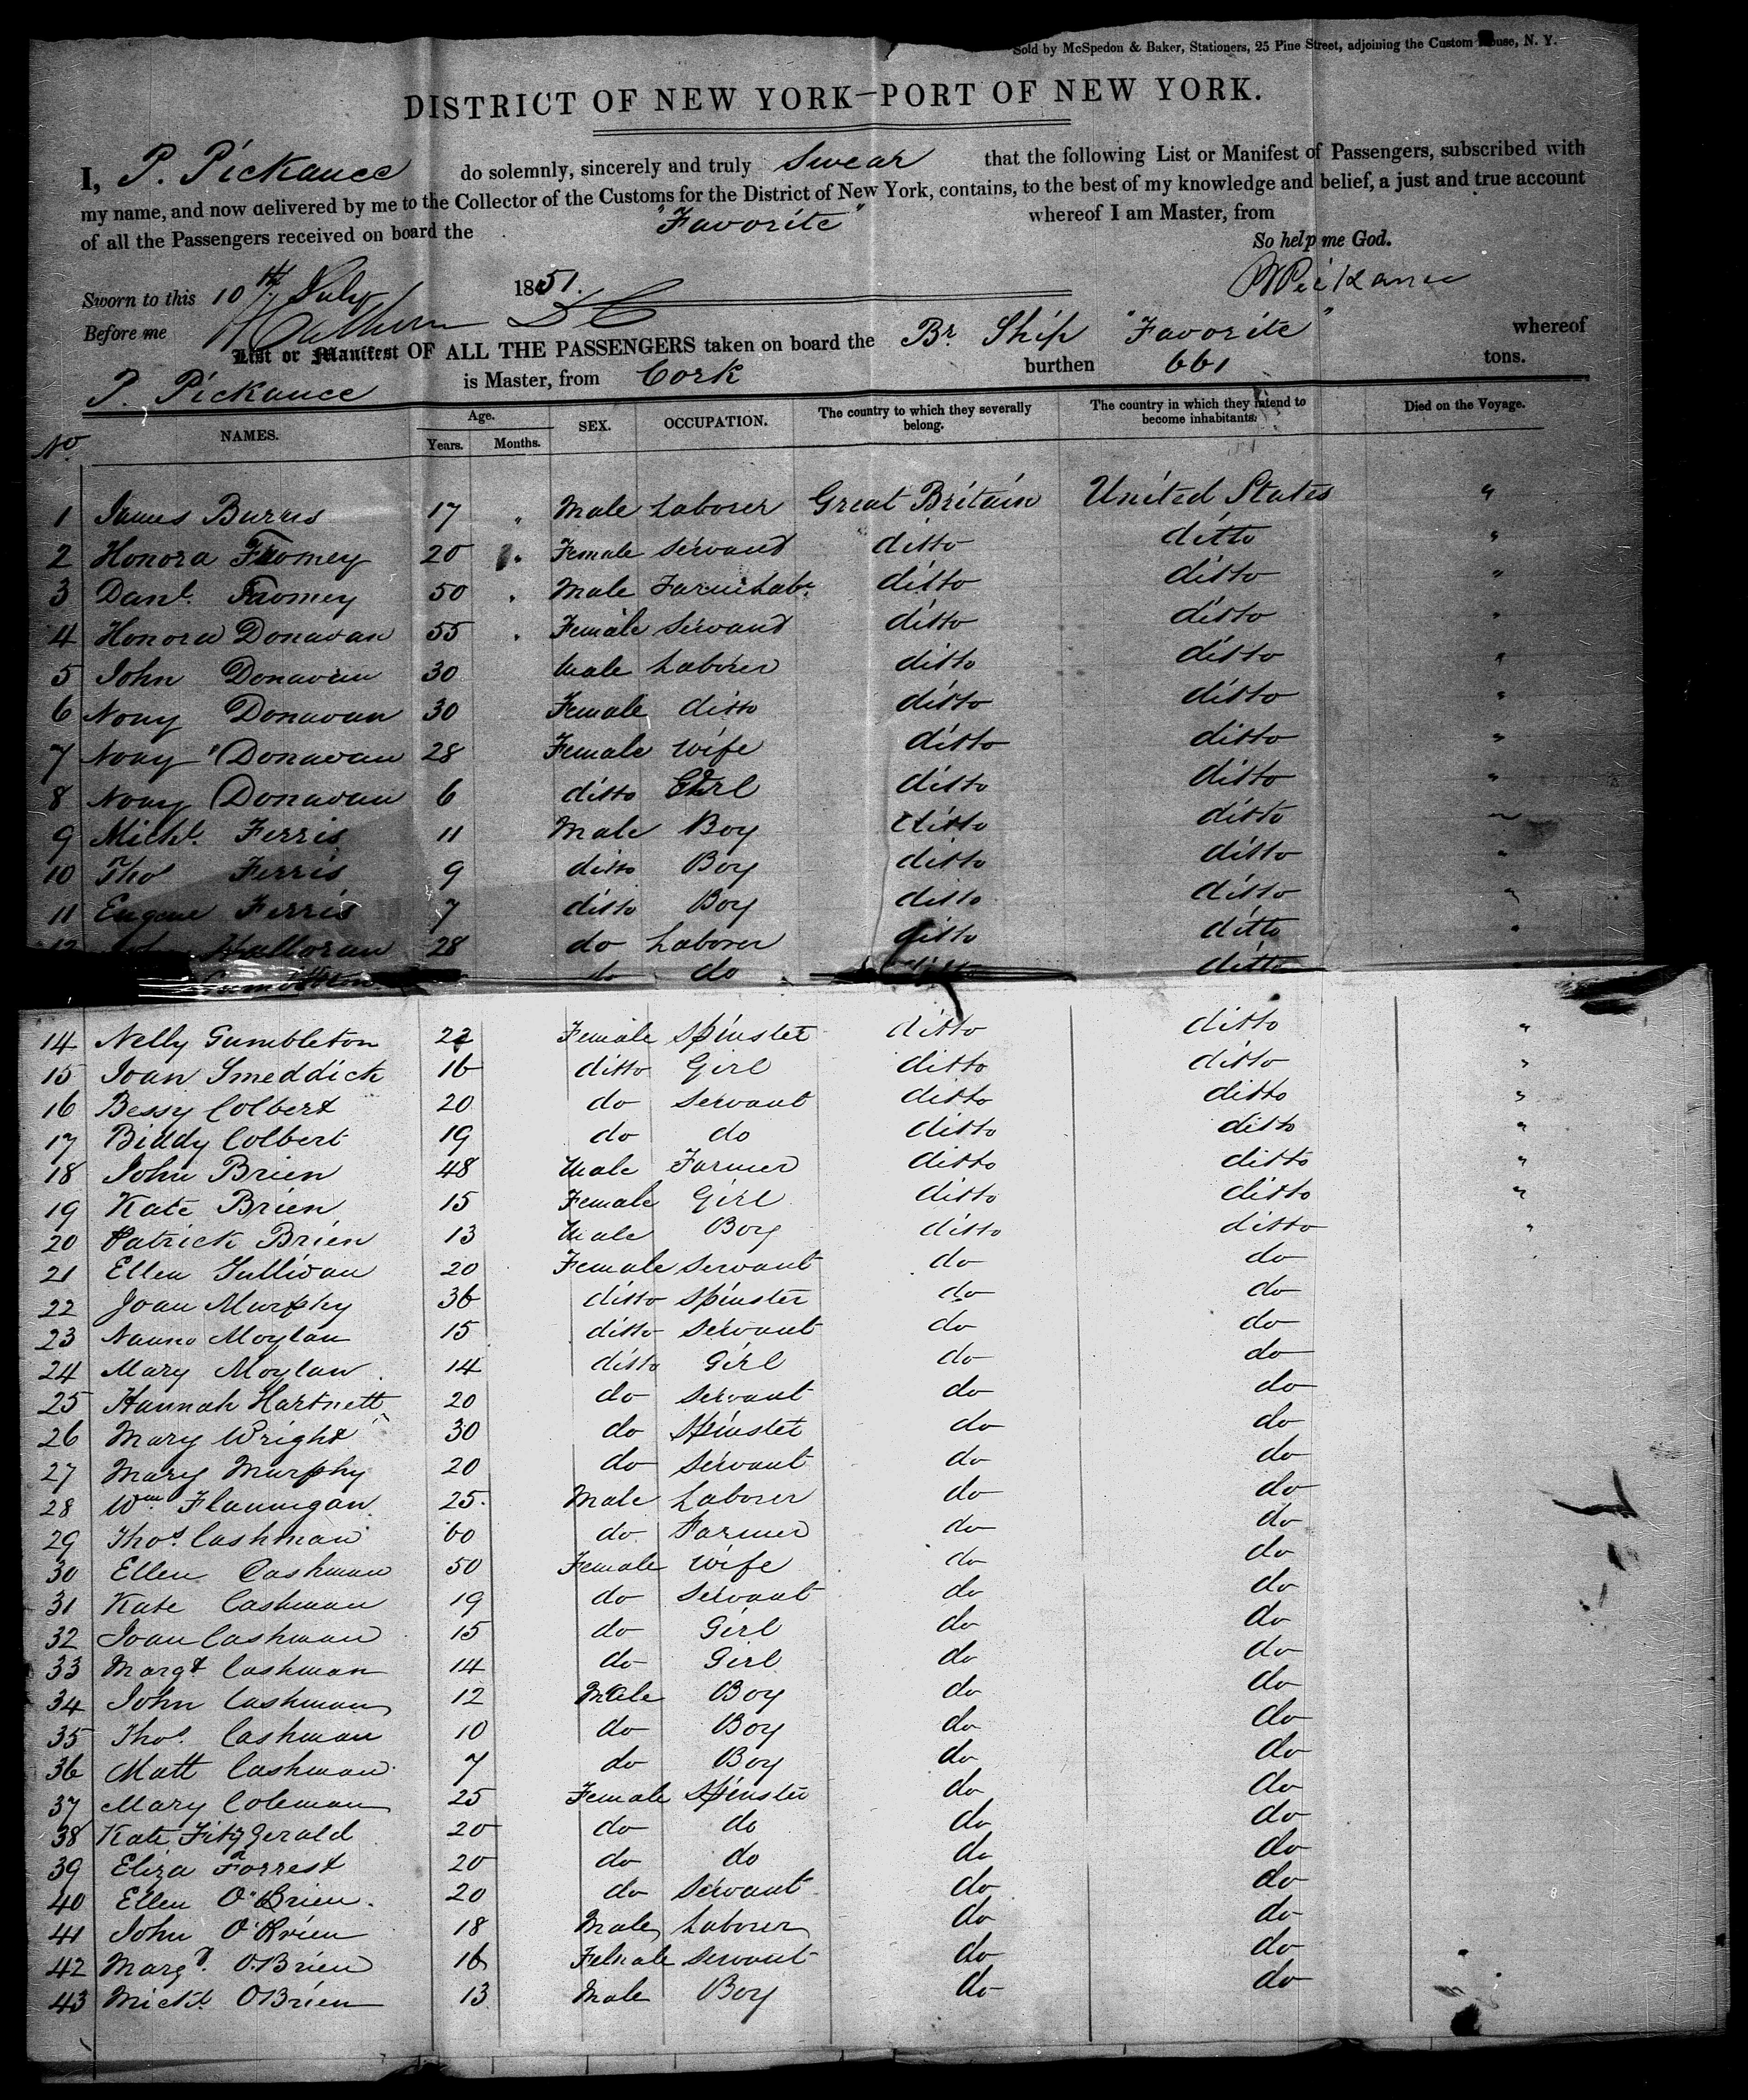 Sold by McSpedon & Baker, Stationers, 25 Pine Street, adjoining the Custom House, N. Y.
DISTRICT OF NEW YORK—PORT OF NEW YORK.
I, P. Pickance do solemnly, sincerely and truly Swear that the following List or Manifest of Passengers, subscribed with
my name, and now delivered by me to the Collector of the Customs for the District of New York, contains, to the best of my knowledge and belief, a just and true account
of all the Passengers received on board the "Favorite" whereof I am Master, from
So help me God.
Sworn to this 10th July 1851. P Pickance
Before me
List or Manifest OF ALL THE PASSENGERS taken on board the Br. Ship "Favorite" whereof
P. Pickance is Master, from Cork burthen 661 tons.
No. NAMES. Age. Years. Months. SEX. OCCUPATION. The country to which they severally belong. The country in which they intend to become inhabitants. Died on the Voyage.
1 James Burns 17 " Male Laborer Great Britain United States "
2 Honora Twomey 20 " Female Servant ditto ditto "
3 Danl. Twomey 50 " Male Farm Labr. ditto ditto "
4 Honora Donavan 55 " Female Servant ditto ditto "
5 John Donavan 30 Male Laborer ditto ditto "
6 Nony Donavan 30 Female ditto ditto ditto "
7 Nony Donavan 28 Female Wife ditto ditto "
8 Nony Donavan 6 ditto Girl ditto ditto "
9 Michl. Ferris 11 Male Boy ditto ditto "
10 Thos Ferris 9 ditto Boy ditto ditto "
11 Eugene Ferris 7 ditto Boy ditto ditto "
12 Halloran 28 do Laborer ditto ditto "
Gumbleton do do ditto ditto
14 Nelly Gumbleton 22 Female Spinster ditto ditto "
15 Joan Smeddick 16 ditto Girl ditto ditto "
16 Bessy Colbert 20 do Servant ditto ditto "
17 Biddy Colbert 19 do do ditto ditto "
18 John Brien 48 Male Farmer ditto ditto "
19 Kate Brien 15 Female Girl ditto ditto "
20 Patrick Brien 13 Male Boy ditto ditto "
21 Ellen Sullivan 20 Female Servant do do
22 Joan Murphy 36 ditto Spinster do do
23 Nanno Moylan 15 ditto Servant do do
24 Mary Moylan 14 ditto Girl do do
25 Hannah Hartnett 20 do Servant do do
26 Mary Wright 30 do Spinster do do
27 Mary Murphy 20 do Servant do do
28 Wm Flannigan 25 Male Laborer do do
29 Thos. Cashman 60 do Farmer do do
30 Ellen Cashman 50 Female Wife do do
31 Kate Cashman 19 do Servant do do
32 Joan Cashman 15 do Girl do do
33 Margt Cashman 14 do Girl do do
34 John Cashman 12 Male Boy do do
35 Thos. Cashman 10 do Boy do do
36 Matt Cashman 7 do Boy do do
37 Mary Coleman 25 Female Spinster do do
38 Kate FitzGerald 20 do do do do
39 Eliza Forrest 20 do do do do
40 Ellen O'Brien 20 do Servant do do
41 John O'Brien 18 Male Laborer do do
42 Margt. O.Brien 16 Female Servant do do
43 Michl. OBrien 13 Male Boy do do